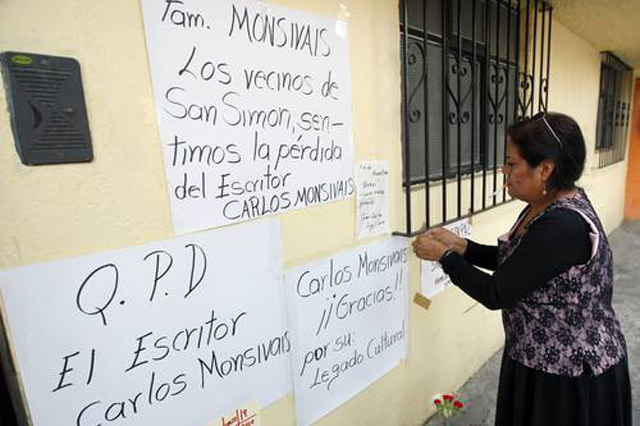 Fam. MONSIVAIS
Los vecinos de
San Simon, sen-
timos la pérdida
del Escritor
CARLOS MONSIVAIS
Q.P.D
El Escritor
Carlos Monsivais
Carlos Monsivais
¡¡Gracias!!
por su:
Legado Cultural